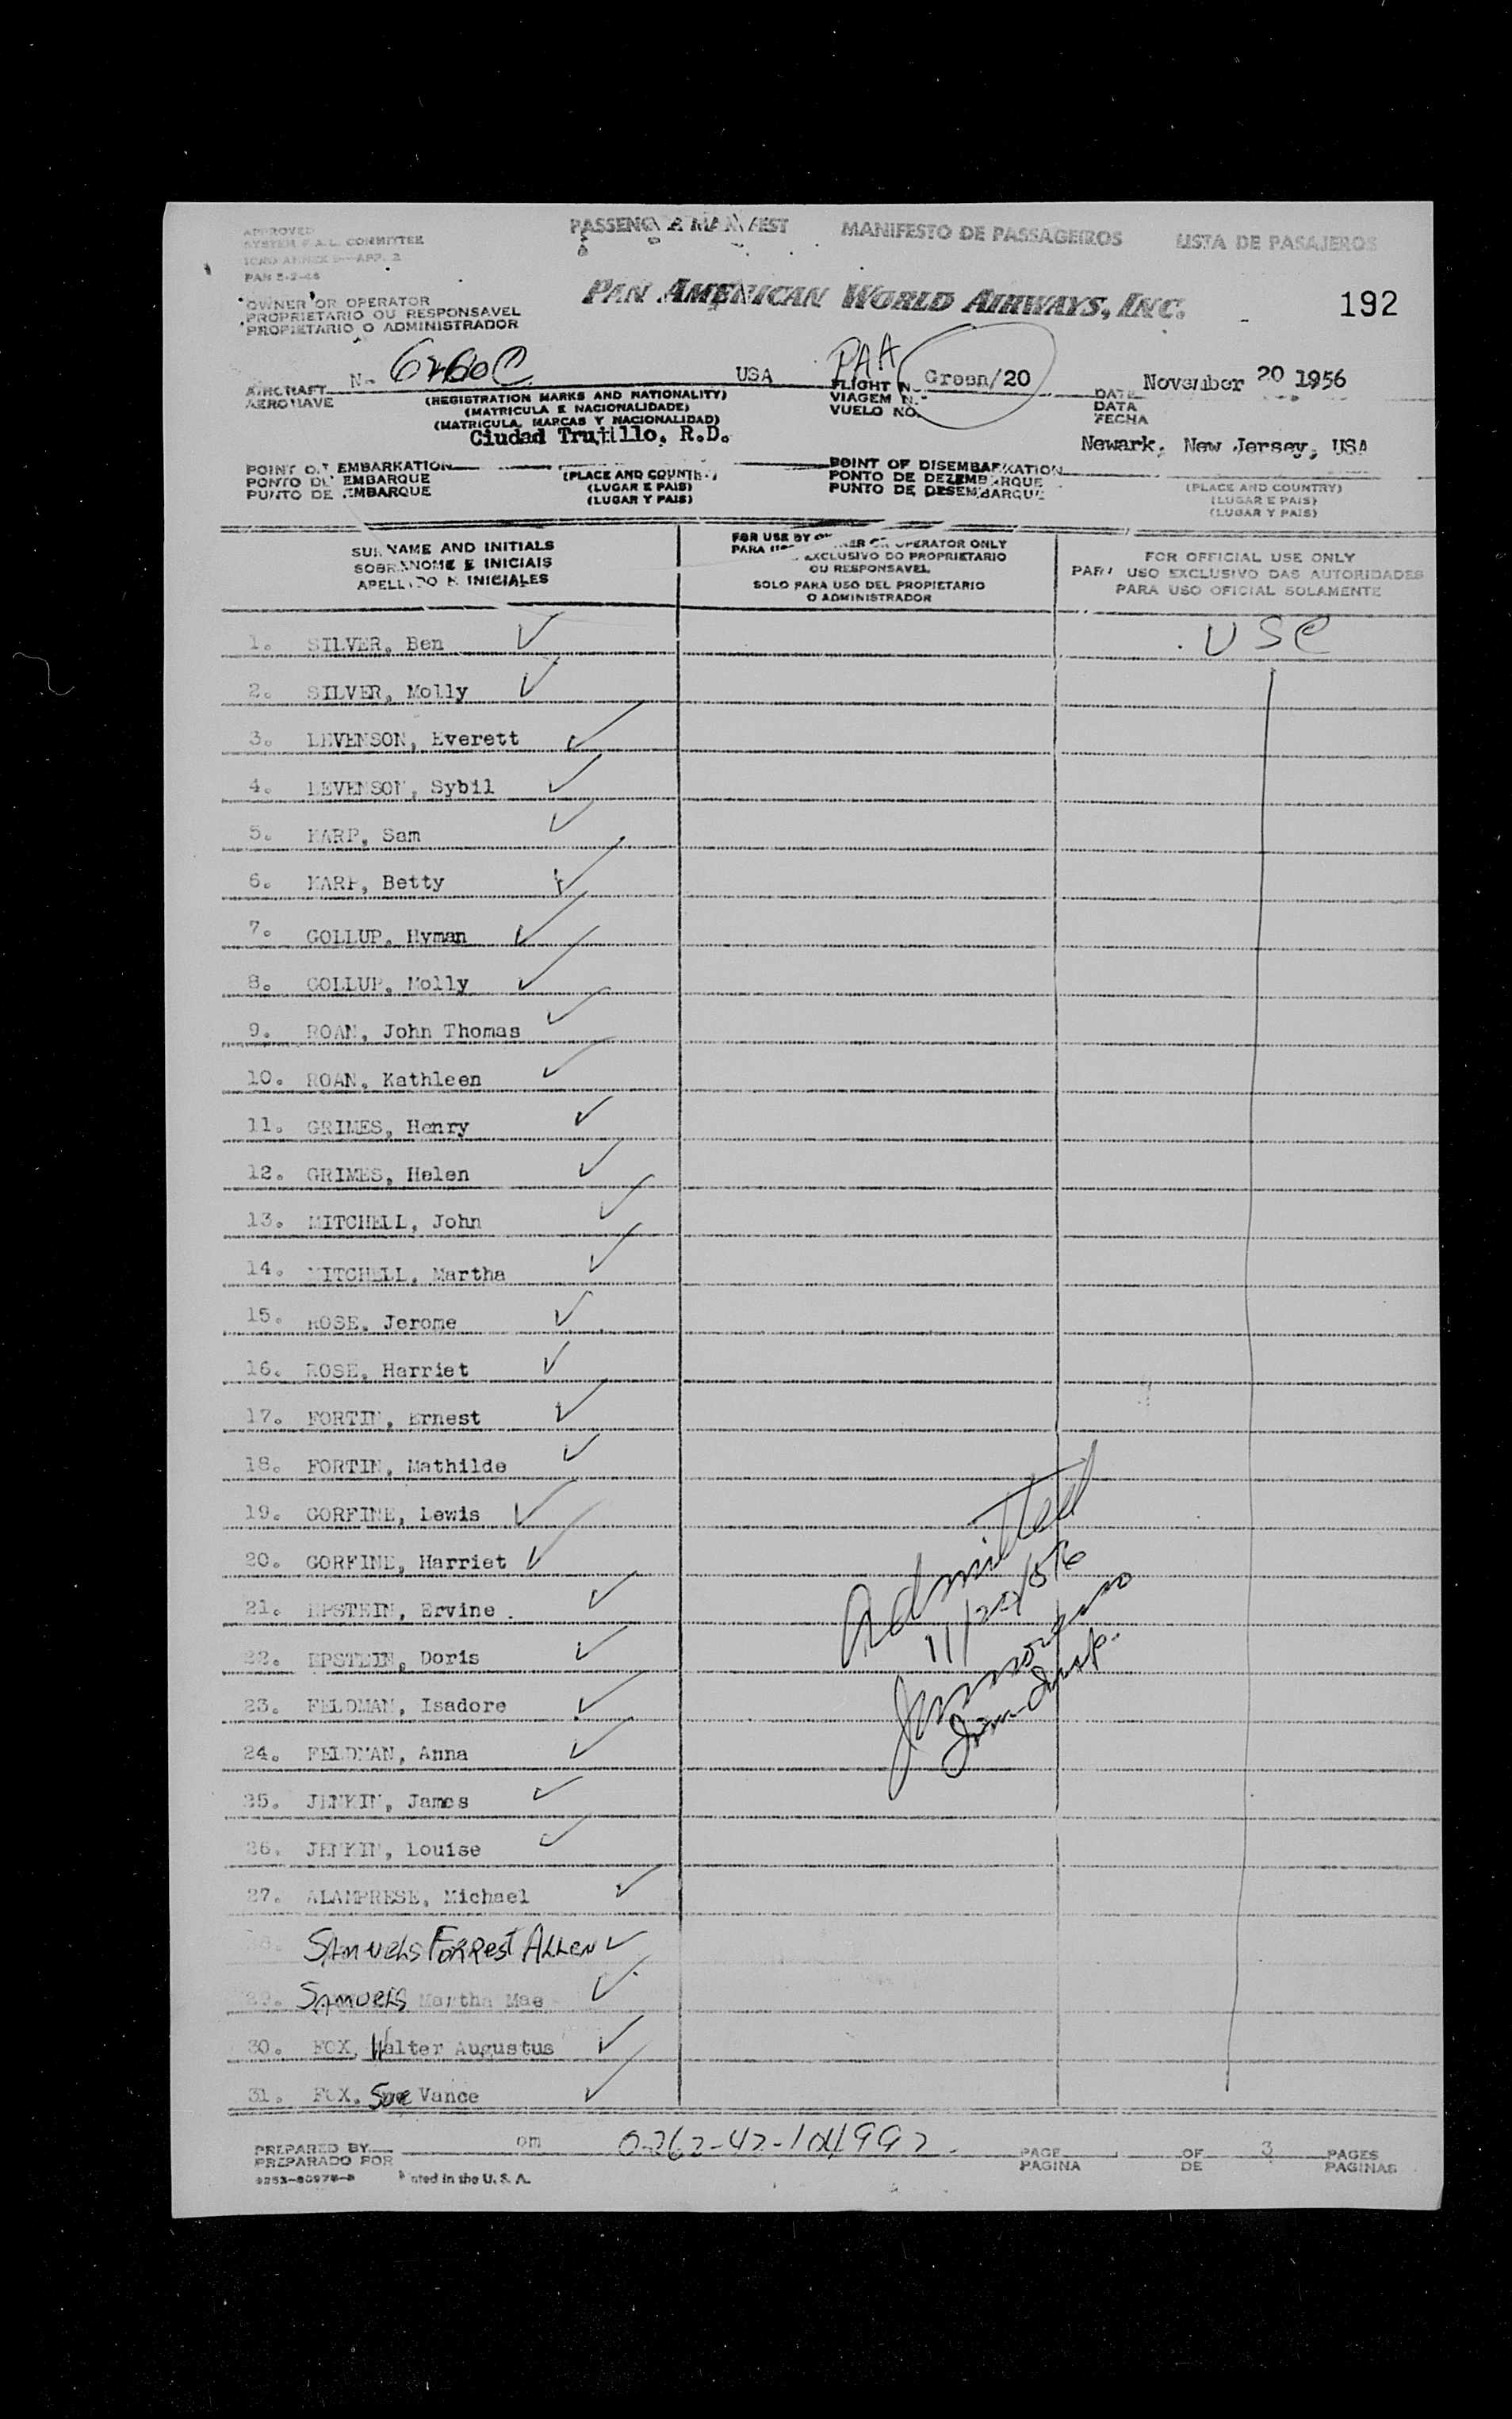 APPROVED
SYSTEM F.A.L. COMMITTEE
ICAO ANNEX 9—APP. 2
PAN 5-2-46
PASSENGER MANIFEST MANIFESTO DE PASSAGEIROS LISTA DE PASAJEROS
OWNER OR OPERATOR
PROPRIETARIO OU RESPONSAVEL
PROPIETARIO O ADMINISTRADOR
PAN AMERICAN WORLD AIRWAYS, INC.
192
AIRCRAFT N- USA
AERONAVE
(REGISTRATION MARKS AND NATIONALITY)
(MATRICULA E NACIONALIDADE)
(MATRICULA, MARCAS Y NACIONALIDAD)
PAA
FLIGHT N. Green/20
VIAGEM N.
VUELO NO.
DATE November 20 1956
DATA
FECHA
Ciudad Trujillo, R.D.
POINT OF EMBARKATION
PONTO DE EMBARQUE
PUNTO DE EMBARQUE
(PLACE AND COUNTRY)
(LUGAR E PAIS)
(LUGAR Y PAIS)
Newark, New Jersey, USA
POINT OF DISEMBARKATION
PONTO DE DEZEMBARQUE
PUNTO DE DESEMBARQUE
(PLACE AND COUNTRY)
(LUGAR E PAIS)
(LUGAR Y PAIS)
SURNAME AND INITIALS
SOBRENOME E INICIAIS
APELLIDO E INICIALES
FOR USE BY OWNER OR OPERATOR ONLY
PARA USO EXCLUSIVO DO PROPRIETARIO
OU RESPONSAVEL
SOLO PARA USO DEL PROPIETARIO
O ADMINISTRADOR
FOR OFFICIAL USE ONLY
PARA USO EXCLUSIVO DAS AUTORIDADES
PARA USO OFICIAL SOLAMENTE
1. SILVER, Ben USC
2. SILVER, Molly
3. LEVENSON, Everett
4. LEVENSON, Sybil
5. KARP, Sam
6. KARP, Betty
7. GOLLUP, Hyman
8. GOLLUP, Molly
9. ROAN, John Thomas
10. ROAN, Kathleen
11. GRIMES, Henry
12. GRIMES, Helen
13. MITCHELL, John
14. MITCHELL, Martha
15. ROSE, Jerome
16. ROSE, Harriet
17. FORTIN, Ernest
18. FORTIN, Mathilde
19. GORFINE, Lewis
20. GORFINE, Harriet
21. EPSTEIN, Ervine
22. EPSTEIN, Doris
23. FELDMAN, Isadore
24. FELDMAN, Anna
25. JENKIN, James
26. JENKIN, Louise
27. ALAMPRESE, Michael
28. SAMUELS FORREST ALLEN
29. SAMUELS Martha Mae
30. FOX, Walter Augustus
31. FOX, Sue Vance
Admitted
11/20/56
Imm Insp.
PREPARED BY om
PREPARADO POR
Printed in the U. S. A.
PAGE 1 OF 3 PAGES
PAGINA DE PAGINAS